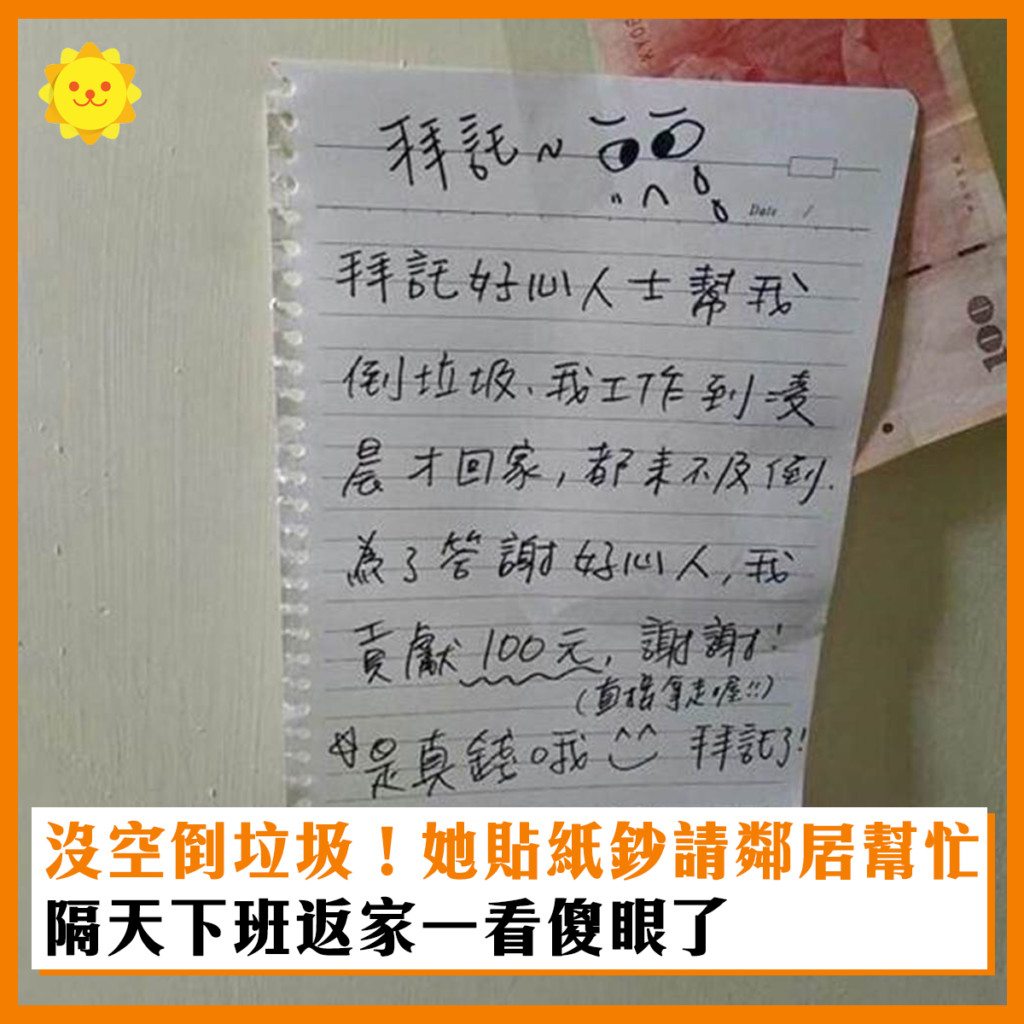 拜託~
Date /
100
拜託好心人士幫我
倒垃圾、我工作到凌
晨才回家，都來不及倒.
為了答謝好心人，我
貢獻100元，謝謝！
(直接拿走喔!!)
是真錢哦^^ 拜託了!
沒空倒垃圾！她貼紙鈔請鄰居幫忙
隔天下班返家一看傻眼了